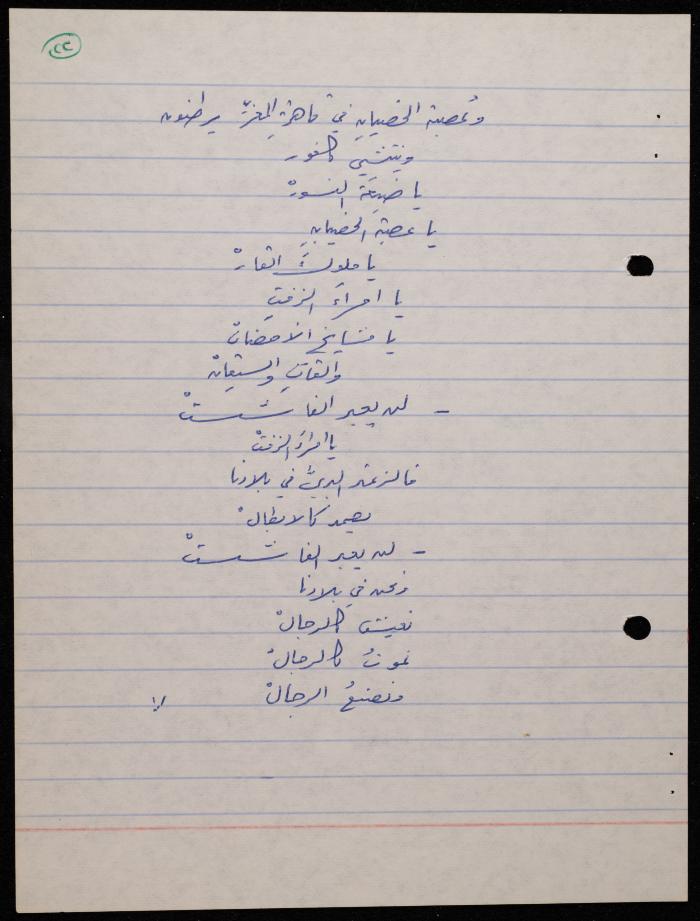 ٢٢
وعُصبة الخصيانِ في قاهرةِ المِعزّ يرطنون
وينتشي كافور
يا ضيعَة النسورْ
يا عصبة الخصيانِ
يا ملوكَ العارْ
يا امراءَ الزفتِ
يا مشايخ الأفخاذْ
والقاتِ والسيقانْ
- لن يعبر الفاشستْ
يا امراءَ الزفتْ
فالزعتر البريُّ في بلادنا
يصمد كالابطالْ
- لن يعبر الفاشستْ
ونحن في بلادنا
نعيش كالرجالْ
نموتُ كالرجالْ
ونصنعُ الرجالْ